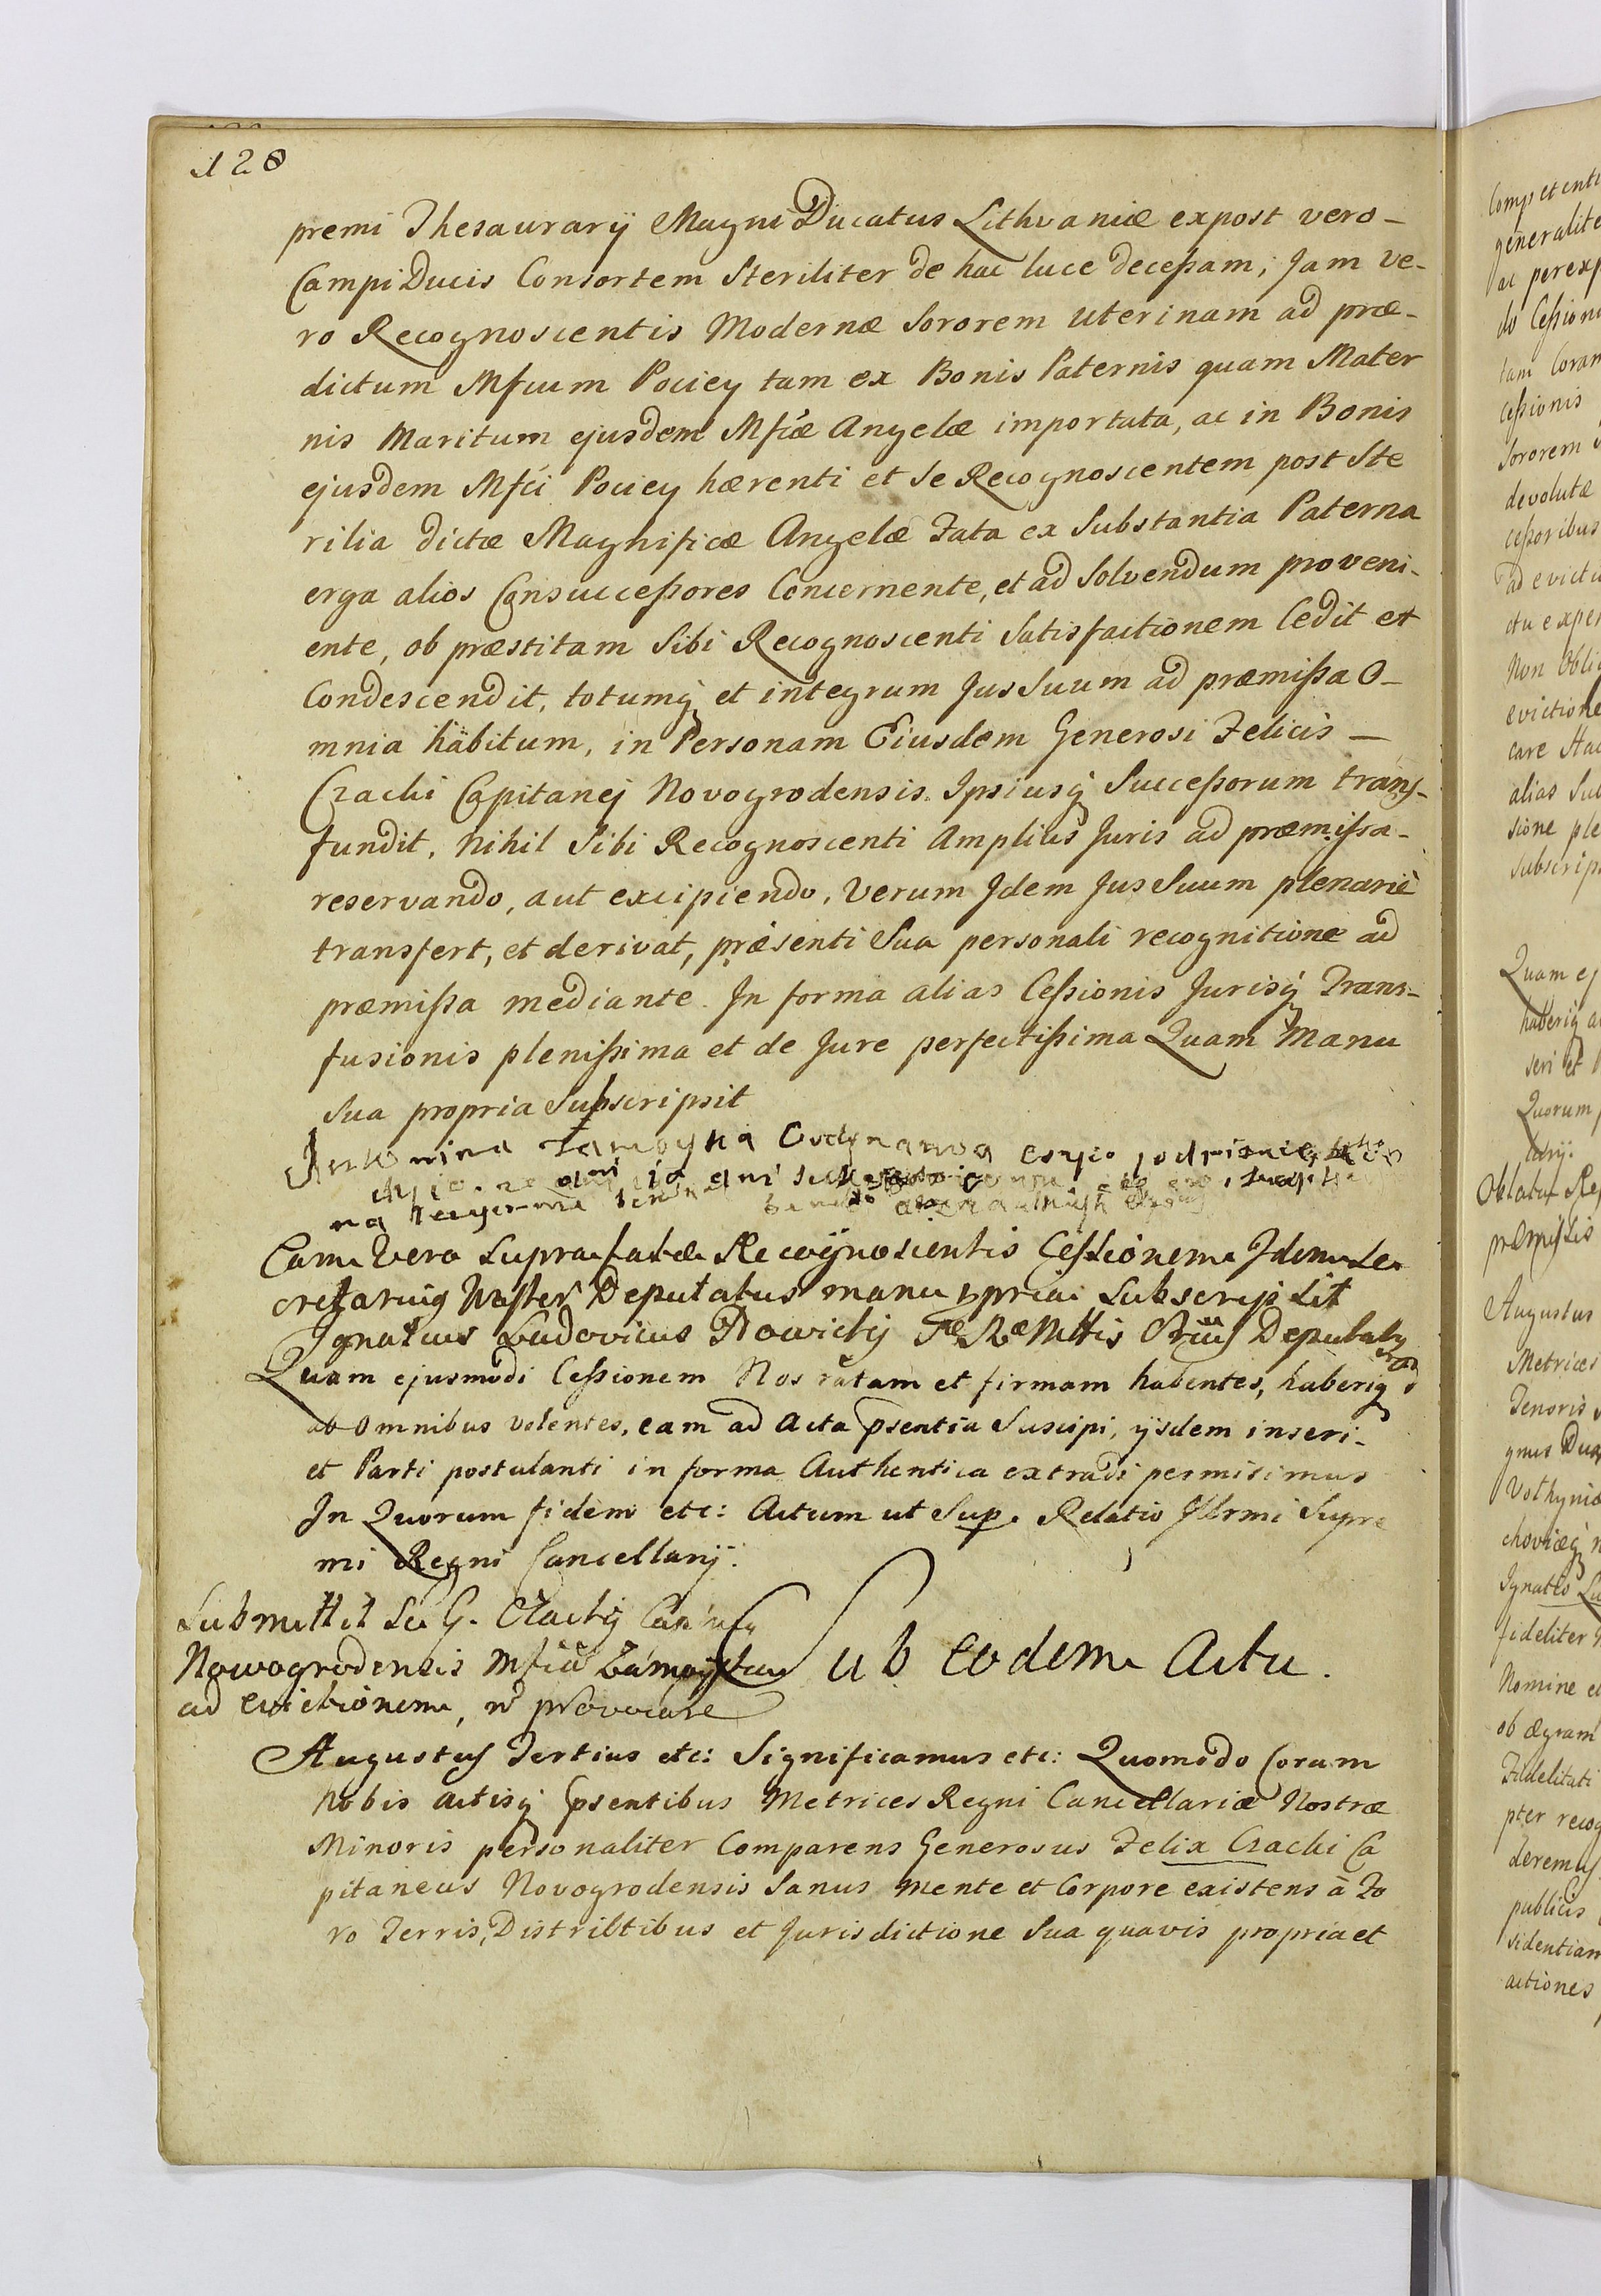 128
premi Thesaurarÿ Magni Ducatus Lithvaniæ expost vero -
Campi Ducis Consortem Steriliter de hac luce deceßam, Jam ve-
ro Recognoscentis Modernæ Sororem Uterinam ad præ-
dictum Mfcum Pociey tam ex Bonis Paternis quam Mater
nis Maritum ejusdem Mfcæ Angelæ importata, ac in Bonis
ejusdem Mfci Pociey hærenti et se Recognoscentem post Ste
rilia dictæ Magnificæ Angelæ Fata ex Substantia Paterna
erga alios Consucceßores Concernente, et ad Solvendum proveni-
ente, ob præstitam Sibi Recognoscenti Satisfactionem Cedit et
Condescendit, totumq et integrum Jus Suum ad præmißa O-
mnia habitum, in Personam Eiusdem Generosi Felicis -
Czacki Capitanej Novogrodensis Ipsiusq Succeßorum trans-
fundit, nihil Sibi Recognoscenti Amplius Juris ad præmissa -
reservando, aut excipiendo, Verum Jdem Jus Suum plenariè
transfert, et derivat, præsenti Sua personali recognitione ad
præmißa mediante. In forma alias Ceßionis Jurisq Trans-
fusionis plenißima et de Jure perfectißima Quam Manu
Sua propria Subscripsit
Zamoyska
na
Eam Vero Supra fatæ Recognoscentis Cessionem Idem Se
cretarius Noster Deputatus manu ppria Subscripsit
Ignatius Ludovicus Deputatus
Quam ejusmodi Ceßionem Nos ratam et firmam habentes, haberiq
ab omnibus volentes, eam ad Acta psentia Suscipi, ÿsdem inseri-
et Parti postulanti in forma Authentica extradi permisimus
In Quorum fidem etc: Actum ut Sup. Relatio Jllrmi Supre
mi Regni Cancellarÿ.
Submittit Se G. Czacky
Nowogrodensis Mfcã Zamoyska
ad evictionem, provocare
Sub eodem Actu.
Augustus Tertius etc: Significamus etc: Quomodo Coram
Nobis Actisq psentibus Metrices Regni Cancellariæ Nostræ
Minoris personaliter Comparens Generosus Felix Czacki Ca
pitaneus Novogrodensis Sanus mente et Corpore existens à Fo
ro Terris, Districtibus et Jurisdictione Sua quavis propria et
generalite
ac perexp
tam Coram
cessionis
Sororem
devolutæ
ceßoribus
Quam ej
haberiq
Quorum
præmissis
Augustus
Metrices
Tenoris
fideliter
Nomine
ob ægram
publicis
sidentiam
actiones